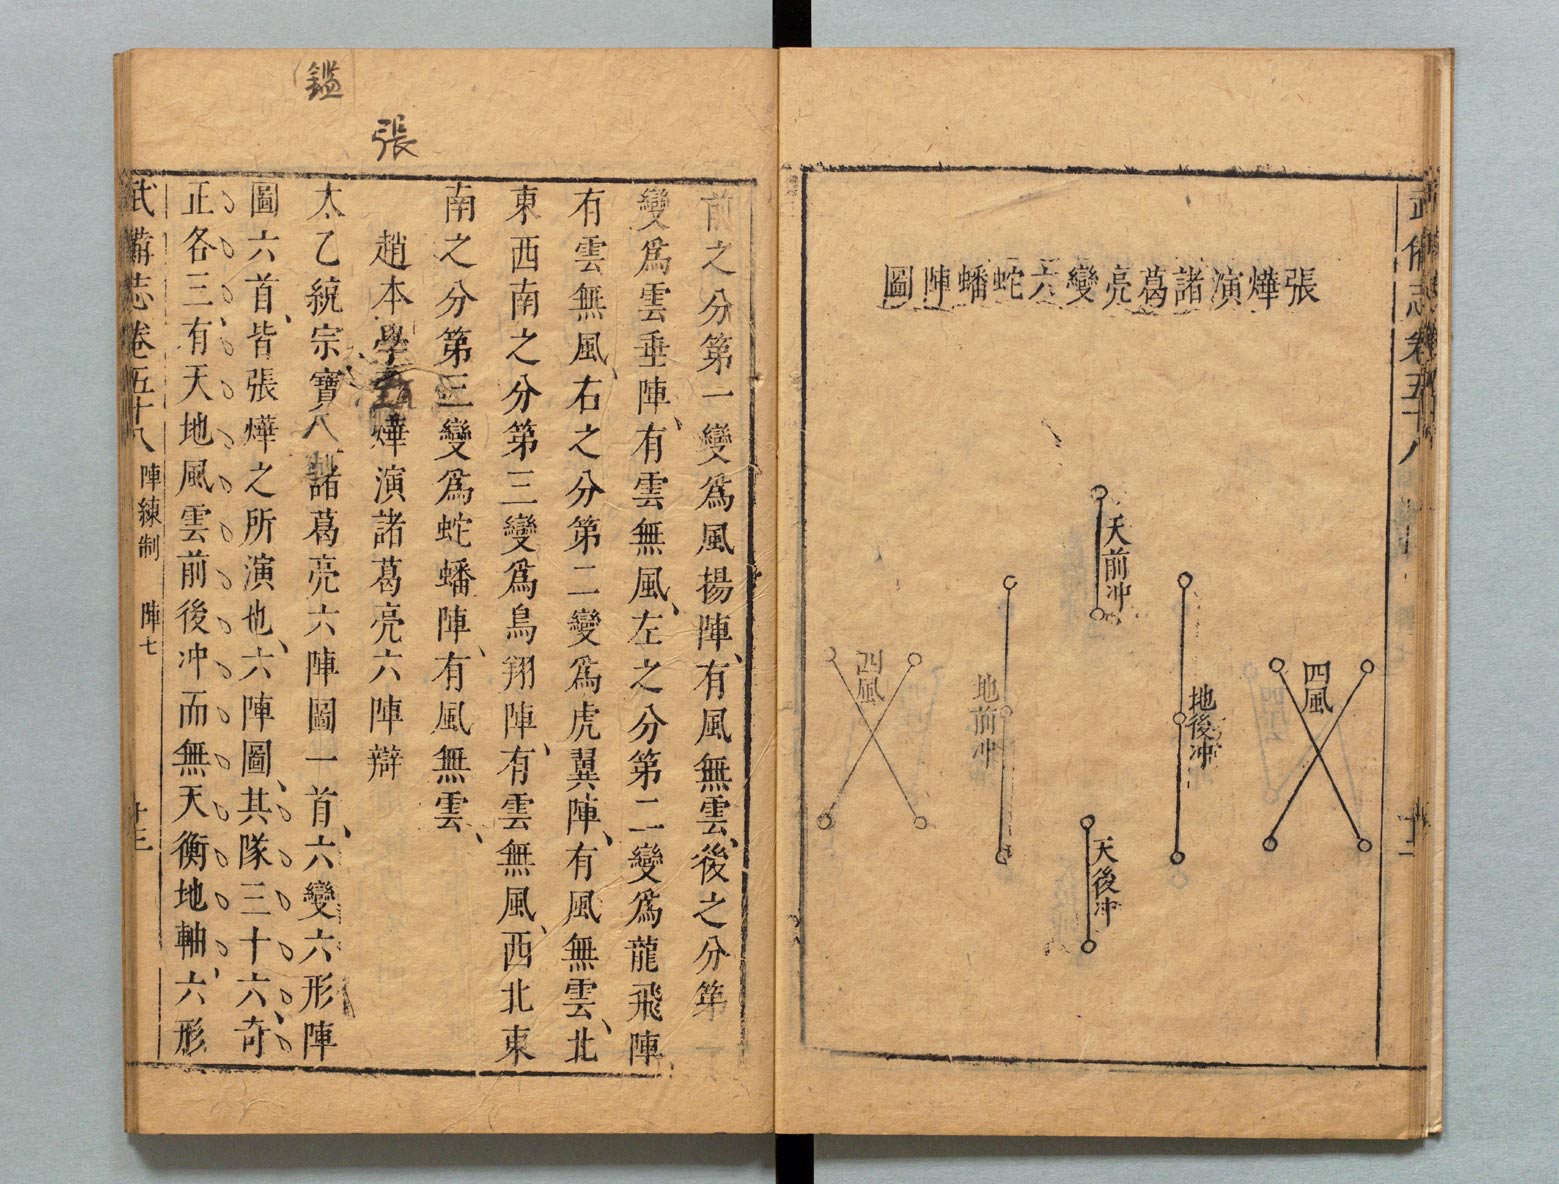 張燁演諸葛亮變六蛇蟠陣圖
天前冲
四風
地後冲
地前冲
四風
天後冲
武備志卷五十八
鑑
張
前之分第一變爲風揚陣、有風無雲、後之分第一
變爲雲垂陣、有雲無風、左之分第二變爲龍飛陣、
有雲無風、右之分第二變爲虎翼陣、有風無雲、北
東西南之分第三變爲鳥翔陣、有雲無風、西北東
南之分第三變爲蛇蟠陣、有風無雲、
趙本學 燁演諸葛亮六陣辯
太乙統宗寶 諸葛亮六陣圖一首、六變六形陣
圖六首、皆張燁之所演也、六陣圖、其隊三十六、奇
正各三、有天地風雲前後冲而無天衡地軸、六形
武備志卷五十八 陣練制 陣七 十三